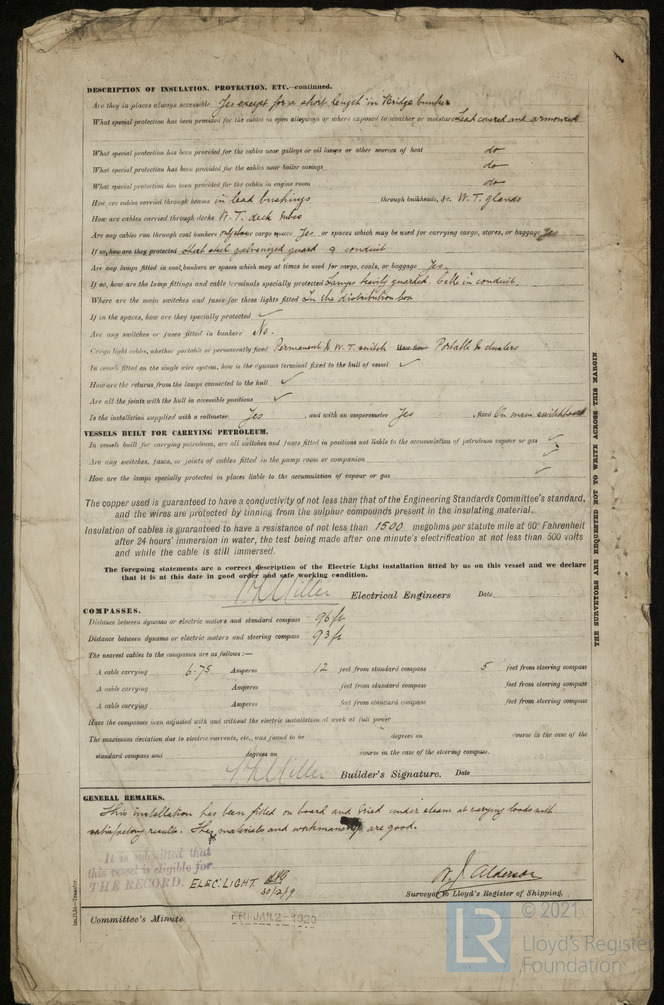 DESCRIPTION OF INSULATION, PROTECTION, ETC.—continued.
Are they in places always accessible Yes except for a short length in Bridge bunker
What special protection has been provided for the cables in open alleyways or where exposed to weather or moisture Lead covered and armoured
What special protection has been provided for the cables near galleys or oil lamps or other sources of heat do
What special protection has been provided for the cables near boiler casings do
What special protection has been provided for the cables in engine room do
How are cables carried through beams in lead bushings through bulkheads, &c. W.T. glands
How are cables carried through decks W.T. deck tubes
Are any cables run through coal bunkers or cargo spaces Yes or spaces which may be used for carrying cargo, stores, or baggage Yes
If so, how are they protected steel galvanized guard & conduit
Are any lamps fitted in coal bunkers or spaces which may at times be used for cargo, coals, or baggage Yes
If so, how are the lamp fittings and cable terminals specially protected Lamps heavily guarded. Cable in conduit.
Where are the main switches and fuses for these lights fitted In the distribution box
If in the spaces, how are they specially protected ✓
Are any switches or fuses fitted in bunkers No.
Cargo light cables, whether portable or permanently fixed Permanent to W.T. switch How fixed Portable to clusters
In vessels fitted on the single wire system, how is the dynamo terminal fixed to the hull of vessel ✓
How are the returns from the lamps connected to the hull ✓
Are all the joints with the hull in accessible positions ✓
Is the installation supplied with a voltmeter Yes , and with an amperemeter Yes , fixed On main switchboard
VESSELS BUILT FOR CARRYING PETROLEUM.
In vessels built for carrying petroleum, are all switches and fuses fitted in positions not liable to the accumulation of petroleum vapour or gas ✓
Are any switches, fuses, or joints of cables fitted in the pump room or companion ✓
How are the lamps specially protected in places liable to the accumulation of vapour or gas ✓
The copper used is guaranteed to have a conductivity of not less than that of the Engineering Standards Committee's standard,
and the wires are protected by tinning from the sulphur compounds present in the insulating material.
Insulation of cables is guaranteed to have a resistance of not less than 1500 megohms per statute mile at 60° Fahrenheit
after 24 hours' immersion in water, the test being made after one minute's electrification at not less than 500 volts
and while the cable is still immersed.
The foregoing statements are a correct description of the Electric Light installation fitted by us on this vessel and we declare
that it is at this date in good order and safe working condition.
Miller Electrical Engineers Date
COMPASSES.
Distance between dynamo or electric motors and standard compass 96 ft
Distance between dynamo or electric motors and steering compass 93 ft
The nearest cables to the compasses are as follows:—
A cable carrying 6.75 Amperes 12 feet from standard compass 5 feet from steering compass
A cable carrying Amperes feet from standard compass feet from steering compass
A cable carrying Amperes feet from standard compass feet from steering compass
Have the compasses been adjusted with and without the electric installation at work at full power
The maximum deviation due to electric currents, etc., was found to be degrees on course in the case of the
standard compass and degrees on course in the case of the steering compass.
Miller Builder's Signature. Date
GENERAL REMARKS.
This installation has been fitted on board and tried under steam at varying loads with
satisfactory results. The materials and workmanship are good.
It is submitted that
this vessel is eligible for
THE RECORD. ELEC: LIGHT
30/12/19
W. J. Alderson
Surveyor to Lloyd's Register of Shipping.
Committee's Minute FRI. JAN. 2 - 1920
THE SURVEYORS ARE REQUESTED NOT TO WRITE ACROSS THIS MARGIN
LR
© 2021
Lloyd's Register
Foundation